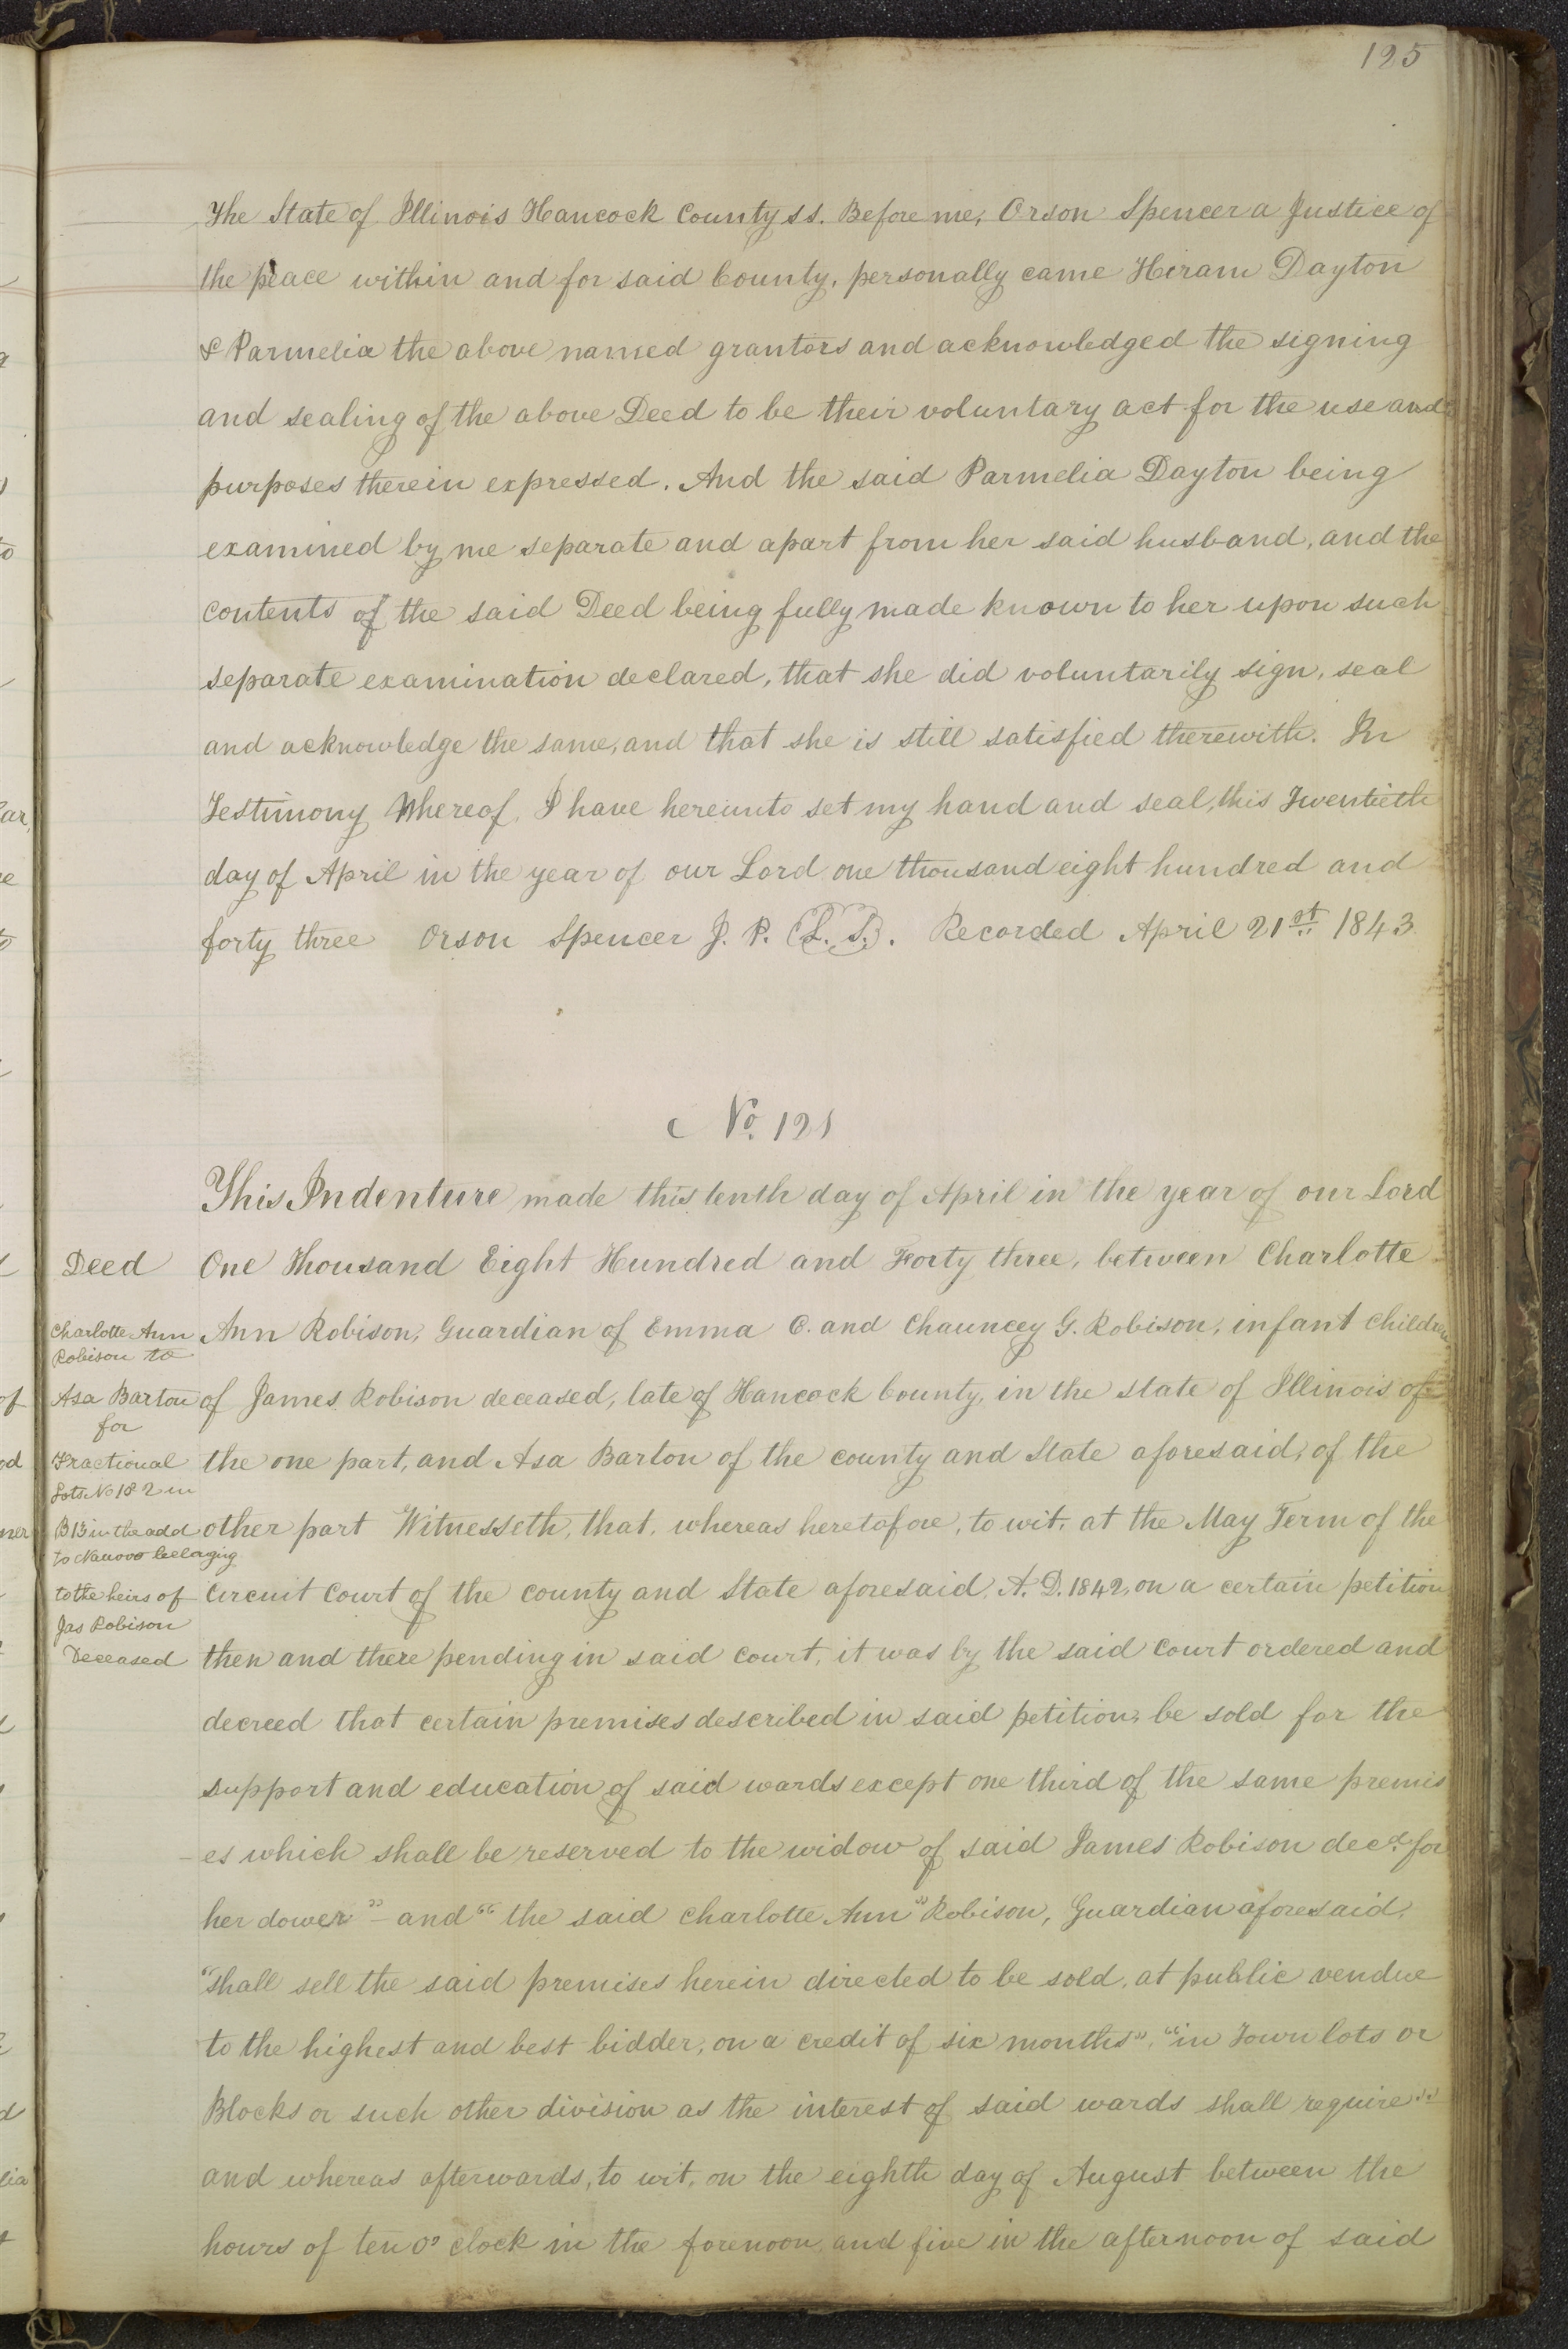 125
The State of Illinois Hancock County ss. Before me, Orson Spencer a Justice of
the peace within and for said County, personally came Hiram Dayton
& Parmelia the above named grantors and acknowledged the signing
and sealing of the above Deed to be their voluntary act for the use and
purposes therein expressed. And the said Parmelia Dayton being
examined by me separate and apart from her said husband, and the
contents of the said Deed being fully made known to her upon such
separate examination declared, that she did voluntarily sign, seal
and acknowledge the same, and that she is still satisfied therewith. In
Testimony Whereof, I have hereunto set my hand and seal, this Twentieth
day of April in the year of our Lord one thousand eight hundred and
forty three Orson Spencer J. P. (L. S.). Recorded April 21st 1843.
No. 121
This Indenture made this tenth day of April in the year of our Lord
Deed
One Thousand Eight Hundred and Forty three, between Charlotte
Charlotte Ann
Robison to
Asa Barton
for
Fractional
Lots No 1 & 2 in
B 13 in the add
to Nauvoo belonging
to the heirs of
Jas Robison
Deceased
Ann Robison, Guardian of Emma C. and Chauncey G. Robison, infant Children
of James Robison deceased, late of Hancock County, in the State of Illinois of
the one part, and Asa Barton of the county and State aforesaid, of the
other part Witnesseth, that, whereas heretofore, to wit, at the May Term of the
Circuit Court of the county and State aforesaid, A. D. 1842, on a certain petition
then and there pending in said court, it was by the said court ordered and
decreed that certain premises described in said petition, be sold for the
support and education of said wards except one third of the same premis
-es which shall be reserved to the widow of said James Robison decd. for
her dower" - and "the said Charlotte Ann" Robison, Guardian aforesaid,
"shall sell the said premises herein directed to be sold, at public vendue
to the highest and best bidder, on a credit of six months", "in Town lots or
Blocks or such other division as the interest of said wards shall require"
and whereas afterwards, to wit, on the eighth day of August between the
hours of ten o' clock in the forenoon, and five in the afternoon of said